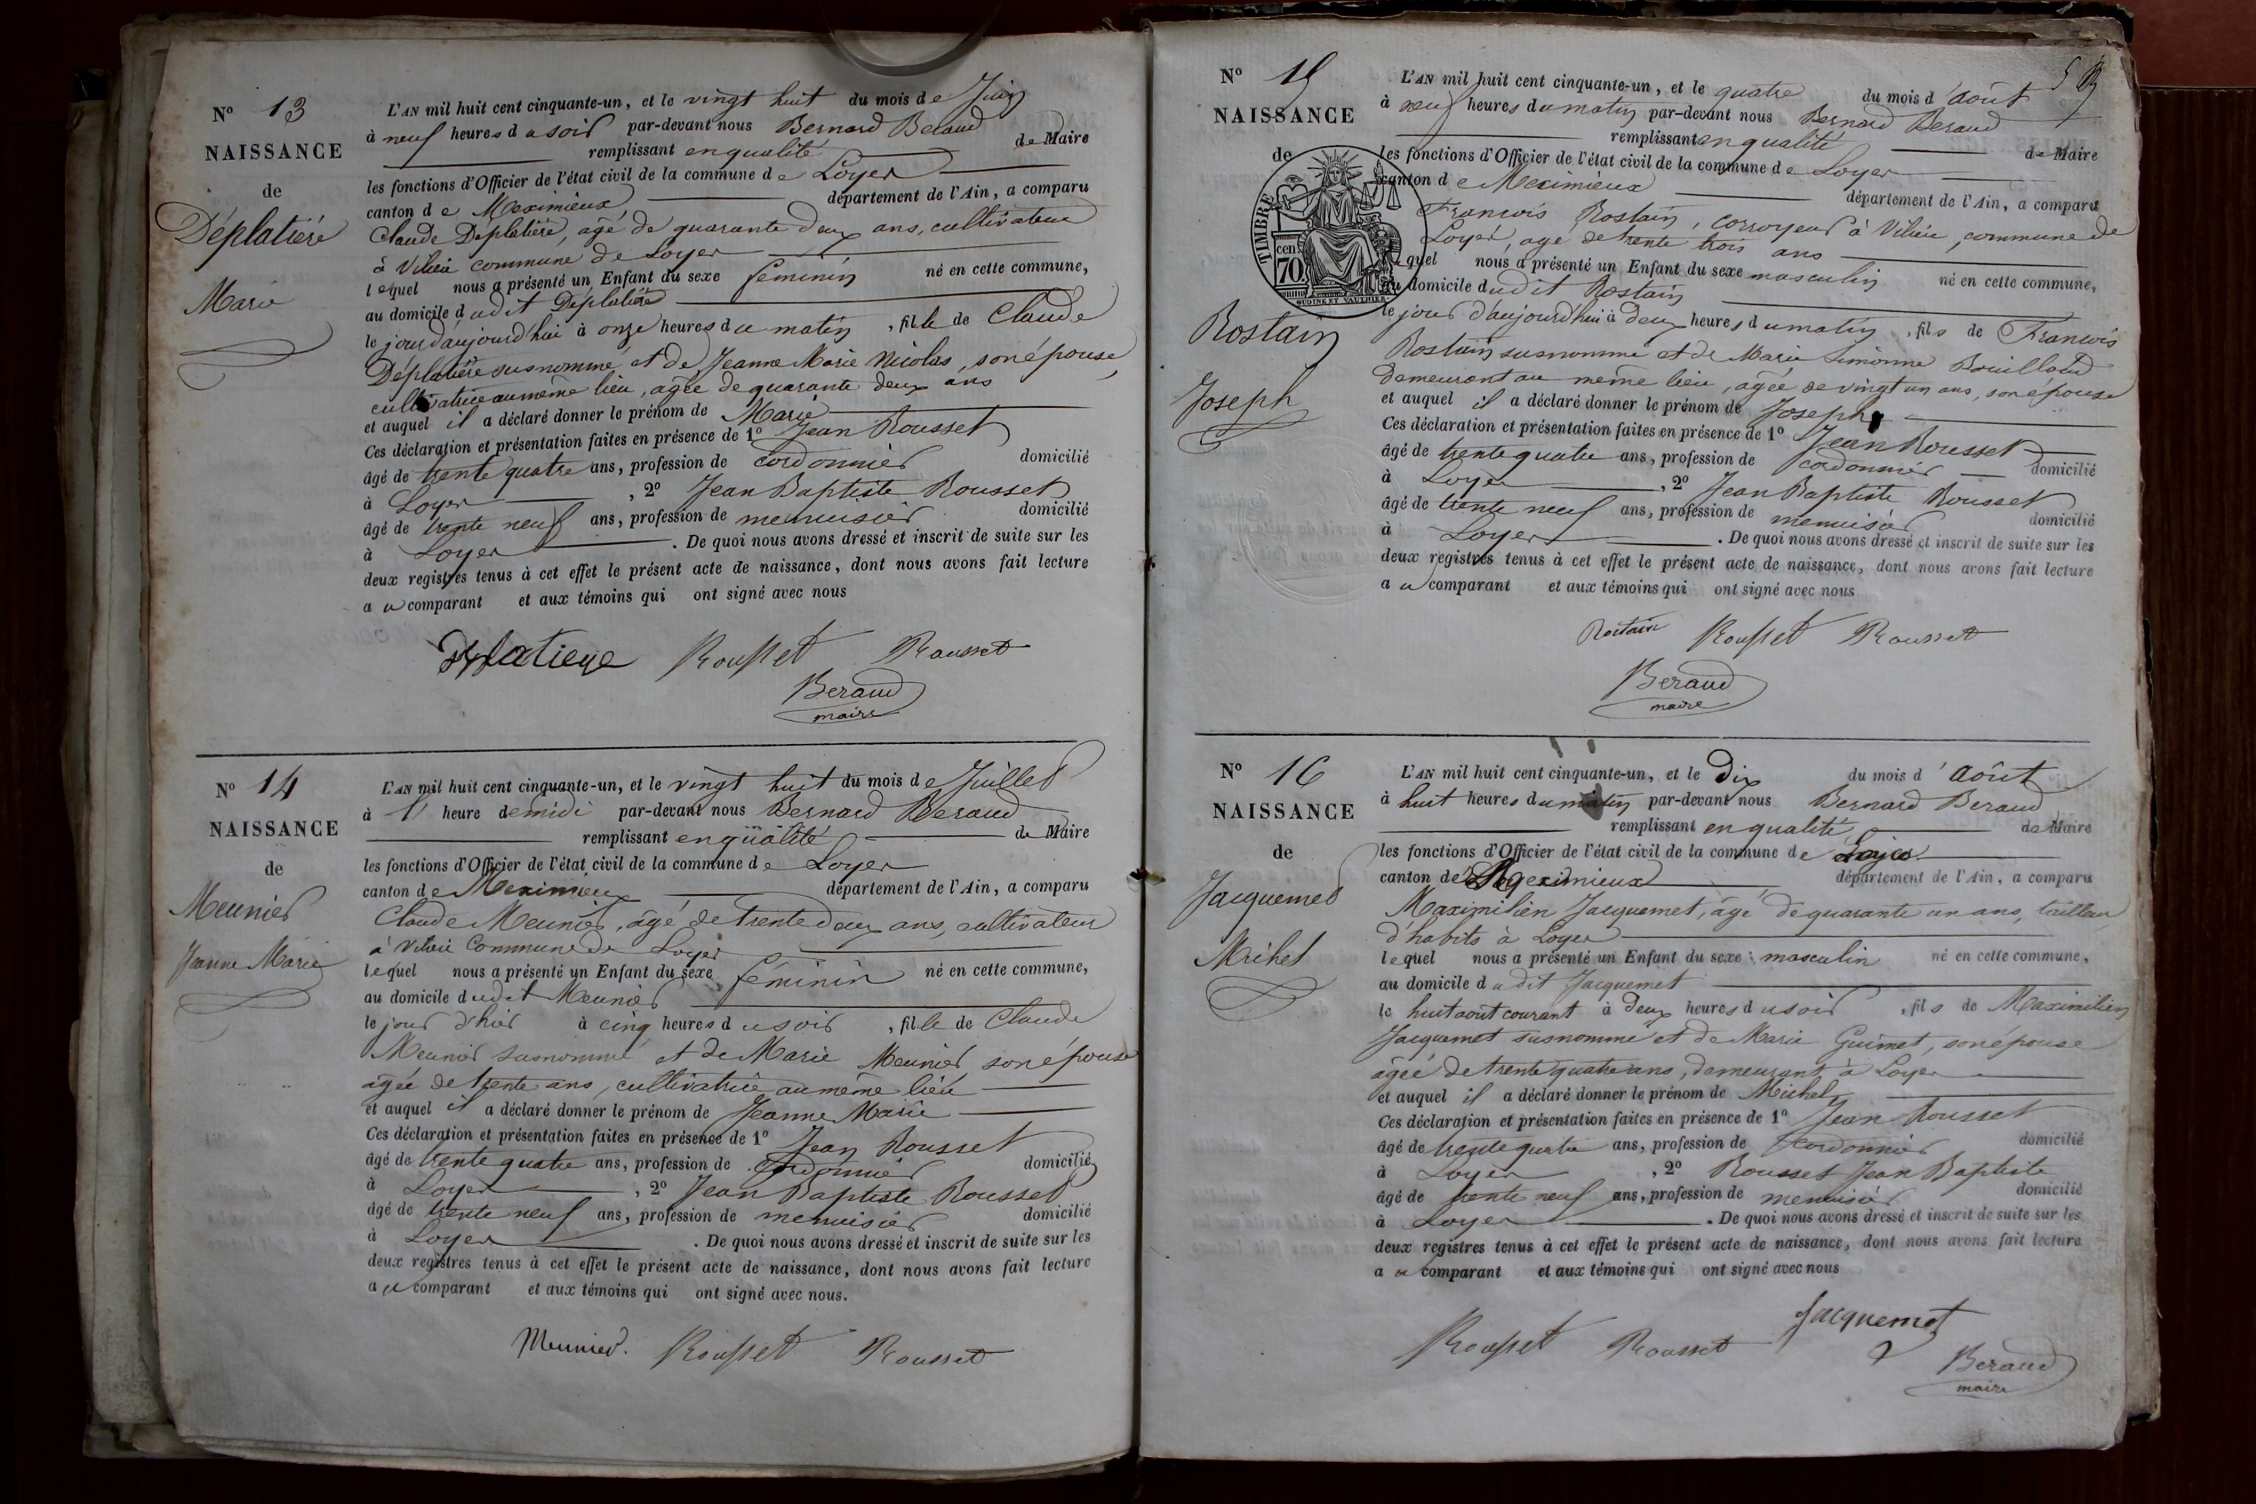 N° 13
NAISSANCE
de
Déplatière
Marie
L'AN mil huit cent cinquante-un, et le vingt huit du mois de Juin
à neuf heures du soir par-devant nous Bernard Beraud
remplissant en qualité de Maire
les fonctions d'Officier de l'état civil de la commune de Loyer
canton de Meximieux département de l'Ain, a comparu
Claude Déplatière, agé de quarante deux ans, cultivateur
à Villieu commune de Loyer
lequel nous a présenté un Enfant du sexe féminin né en cette commune,
au domicile dudit Déplatière
le jour d'aujourd'hui à onze heures du matin, fille de Claude
Déplatière susnommé et de Jeanne Marie Nicolas, son épouse,
cultivatrice au même lieu, agée de quarante deux ans
et auquel il a déclaré donner le prénom de Marie
Ces déclaration et présentation faites en présence de 1° Jean Rousset
âgé de trente quatre ans, profession de cordonnier domicilié
à Loyer, 2° Jean Baptiste Rousset
âgé de trente neuf ans, profession de menuisier domicilié
à Loyer. De quoi nous avons dressé et inscrit de suite sur les
deux registres tenus à cet effet le présent acte de naissance, dont nous avons fait lecture
au comparant et aux témoins qui ont signé avec nous
Rousset Rousset
Beraud
maire
N° 14
NAISSANCE
de
Meunier
Jeanne Marie
L'AN mil huit cent cinquante-un, et le vingt huit du mois de Juillet
à 1 heure de midi par-devant nous Bernard Beraud
remplissant en qualité de Maire
les fonctions d'Officier de l'état civil de la commune de Loyer
canton de Meximieux département de l'Ain, a comparu
Claude Meunier, agé de trente deux ans, cultivateur
à Villieu Commune de Loyer
lequel nous a présenté un Enfant du sexe féminin né en cette commune,
au domicile dudit Meunier
le jour d'hier à cinq heures du soir, fille de Claude
Meunier susnommé et de Marie Meunier son épouse
agée de trente ans, cultivatrice au même lieu
et auquel il a déclaré donner le prénom de Jeanne Marie
Ces déclaration et présentation faites en présence de 1° Jean Rousset
âgé de trente quatre ans, profession de cordonnier domicilié
à Loyer, 2° Jean Baptiste Rousset
âgé de trente neuf ans, profession de menuisier domicilié
à Loyer. De quoi nous avons dressé et inscrit de suite sur les
deux registres tenus à cet effet le présent acte de naissance, dont nous avons fait lecture
au comparant et aux témoins qui ont signé avec nous.
Meunier. Rousset Rousset
N° 15
NAISSANCE
de
TIMBRE
cent
70
Rostain
Joseph
L'AN mil huit cent cinquante-un, et le quatre du mois d'août
à neuf heures du matin par-devant nous Bernard Beraud
remplissant en qualité de Maire
les fonctions d'Officier de l'état civil de la commune de Loyer
canton de Meximieux département de l'Ain, a comparu
François Rostain, corroyeur à Villieu, commune de
Loyer, agé de trente trois ans
lequel nous a présenté un Enfant du sexe masculin né en cette commune,
au domicile dudit Rostain
le jour d'aujourd'hui à deux heures du matin, fils de François
Rostain susnommé et de Marie Simonne Bouilloud
demeurant au même lieu, agée de vingt un ans, son épouse
et auquel il a déclaré donner le prénom de Joseph
Ces déclaration et présentation faites en présence de 1° Jean Rousset
âgé de trente quatre ans, profession de cordonnier domicilié
à Loyer, 2° Jean Baptiste Rousset
âgé de trente neuf ans, profession de menuisier domicilié
à Loyer. De quoi nous avons dressé et inscrit de suite sur les
deux registres tenus à cet effet le présent acte de naissance, dont nous avons fait lecture
au comparant et aux témoins qui ont signé avec nous
Rostain Rousset Rousset
Beraud
maire
N° 16
NAISSANCE
de
Jacquemet
Michel
L'AN mil huit cent cinquante-un, et le Dix du mois d'août
à huit heures du matin par-devant nous Bernard Beraud
remplissant en qualité de Maire
les fonctions d'Officier de l'état civil de la commune de Loyer
canton de Meximieux département de l'Ain, a comparu
Maximilien Jacquemet, agé de quarante un ans, tailleur
d'habits à Loyer
lequel nous a présenté un Enfant du sexe masculin né en cette commune,
au domicile dudit Jacquemet
le huit aout courant à deux heures du soir, fils de Maximilien
Jacquemet susnommé et de Marie Guimet, son épouse
agée de trente quatre ans, demeurant à Loyer
et auquel il a déclaré donner le prénom de Michel
Ces déclaration et présentation faites en présence de 1° Jean Rousset
âgé de trente quatre ans, profession de cordonnier domicilié
à Loyer, 2° Rousset Jean Baptiste
âgé de trente neuf ans, profession de menuisier domicilié
à Loyer. De quoi nous avons dressé et inscrit de suite sur les
deux registres tenus à cet effet le présent acte de naissance, dont nous avons fait lecture
au comparant et aux témoins qui ont signé avec nous
Jacquemet
Rousset Rousset
Beraud
maire